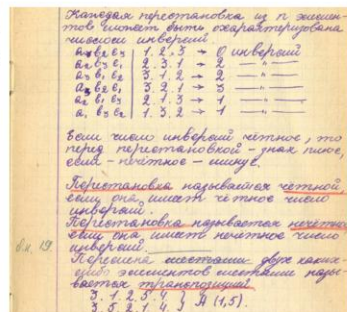 Каждая перестановка из n элемен-
тов может быть охарактеризована
числом инверсий
a₁ b₂ c₃ | 1. 2. 3 → 0 инверсий
a₂ b₃ c₁ | 2. 3. 1 → 2 — " —
a₃ b₁ c₂ | 3. 1. 2 → 2 — " —
a₃ b₂ c₁ | 3. 2. 1 → 3 — " —
a₂ b₁ c₃ | 2. 1. 3 → 1 — " —
a₁ b₃ c₂ | 1. 3. 2 → 1 — " —
Если число инверсий чётное, то
перед перестановкой - знак плюс,
если - нечётное - минус.
Перестановка называется чётной,
если она имеет чётное число
инверсий.
Перестановка называется нечётно
если она имеет нечётное число
инверсий.
Перемена местами двух каких-
либо элементов местами назы-
вается транспозицией
3. 1. 2 5. 4
3. 5. 2 1. 4 } A (1,5).